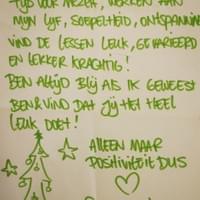 TIJD VOOR MEZELF, WERKEN AAN
MIJN LIJF, SOEPELHEID, ONTSPANNING
VIND DE LESSEN LEUK, GEVARIEERD
EN LEKKER KRACHTIG!
BEN ALTIJD BLIJ ALS IK GEWEEST
BEN & VIND DAT JIJ HET HEEL
LEUK DOET!
ALLEEN MAAR
POSITIVITEIT DUS